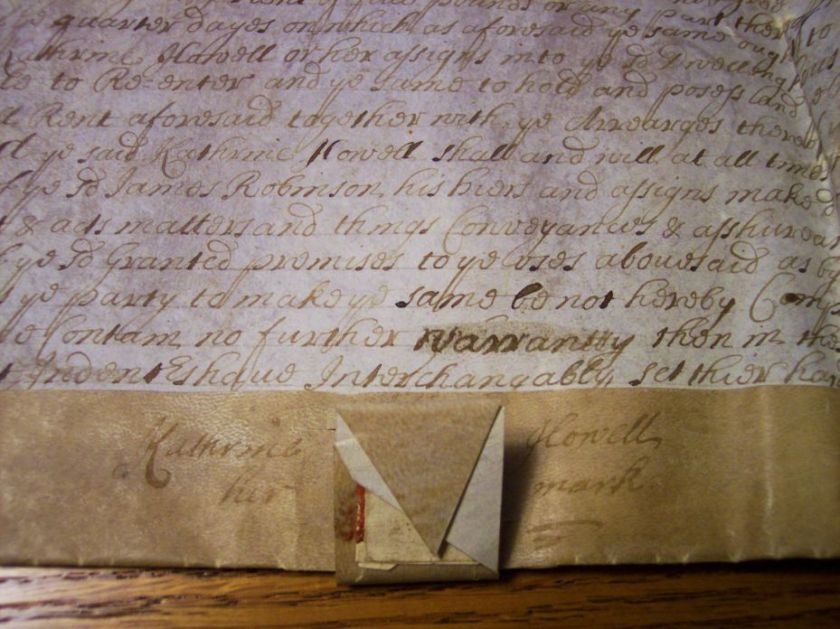 rent of five pounds or any part ther
quarter dayes on which as aforesaid ye same ough
Kathrine Howell or her assigns into ye sd Dwelling
to Re-enter and ye same to hold and posess land
Rent aforesaid together with ye Arrearges thereo
ye said Kathrine Howell shall and will at all times
ye sd James Robinson his hiers and assigns make
& acts matters and things Conveyances & asshuran
ye sd Granted premises to ye uses abovesaid as b
ye party to make ye same be not hereby Com
Contain no further warrantty then in the
Indent Eshave Interchangably set thier han
Kathrine Howell
her mark